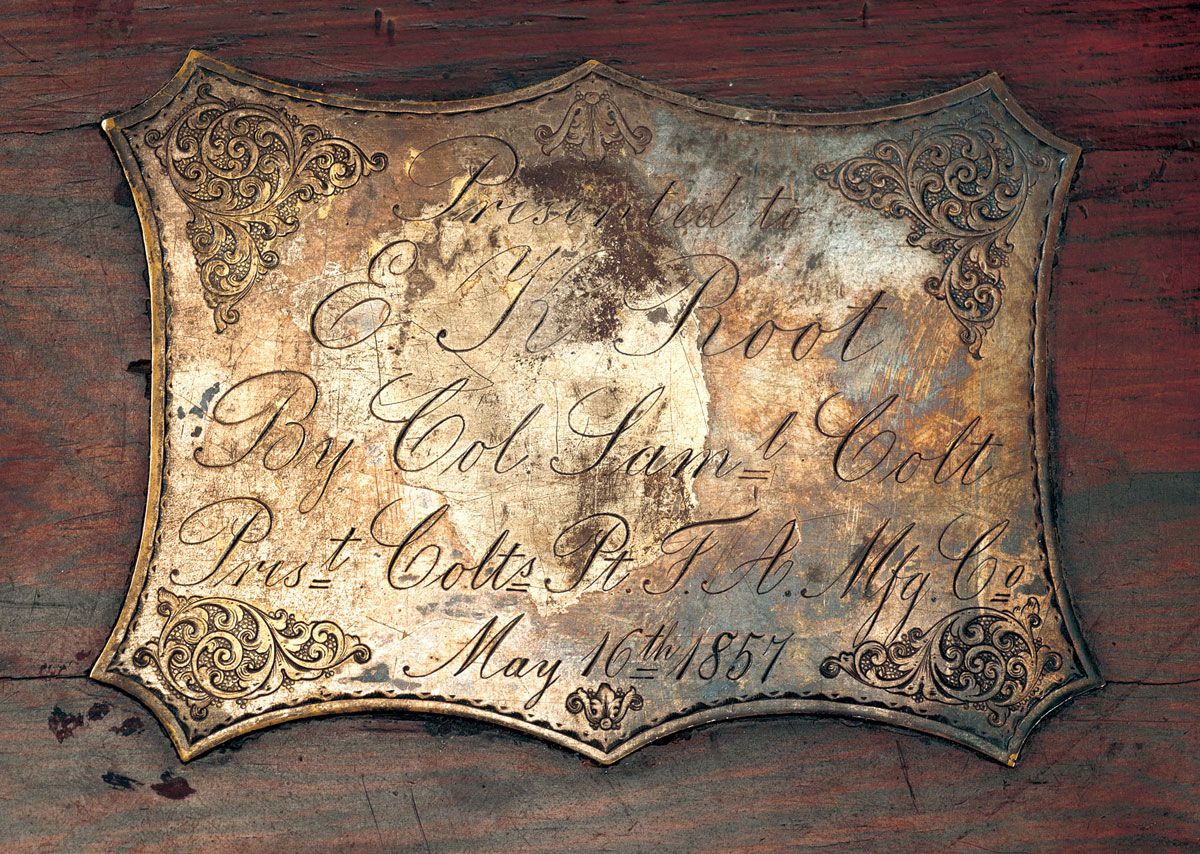 Presented to
E K Root
By Col Saml Colt
Prist Colts Pt. F. A. Mfg. Co
May 16th 1857